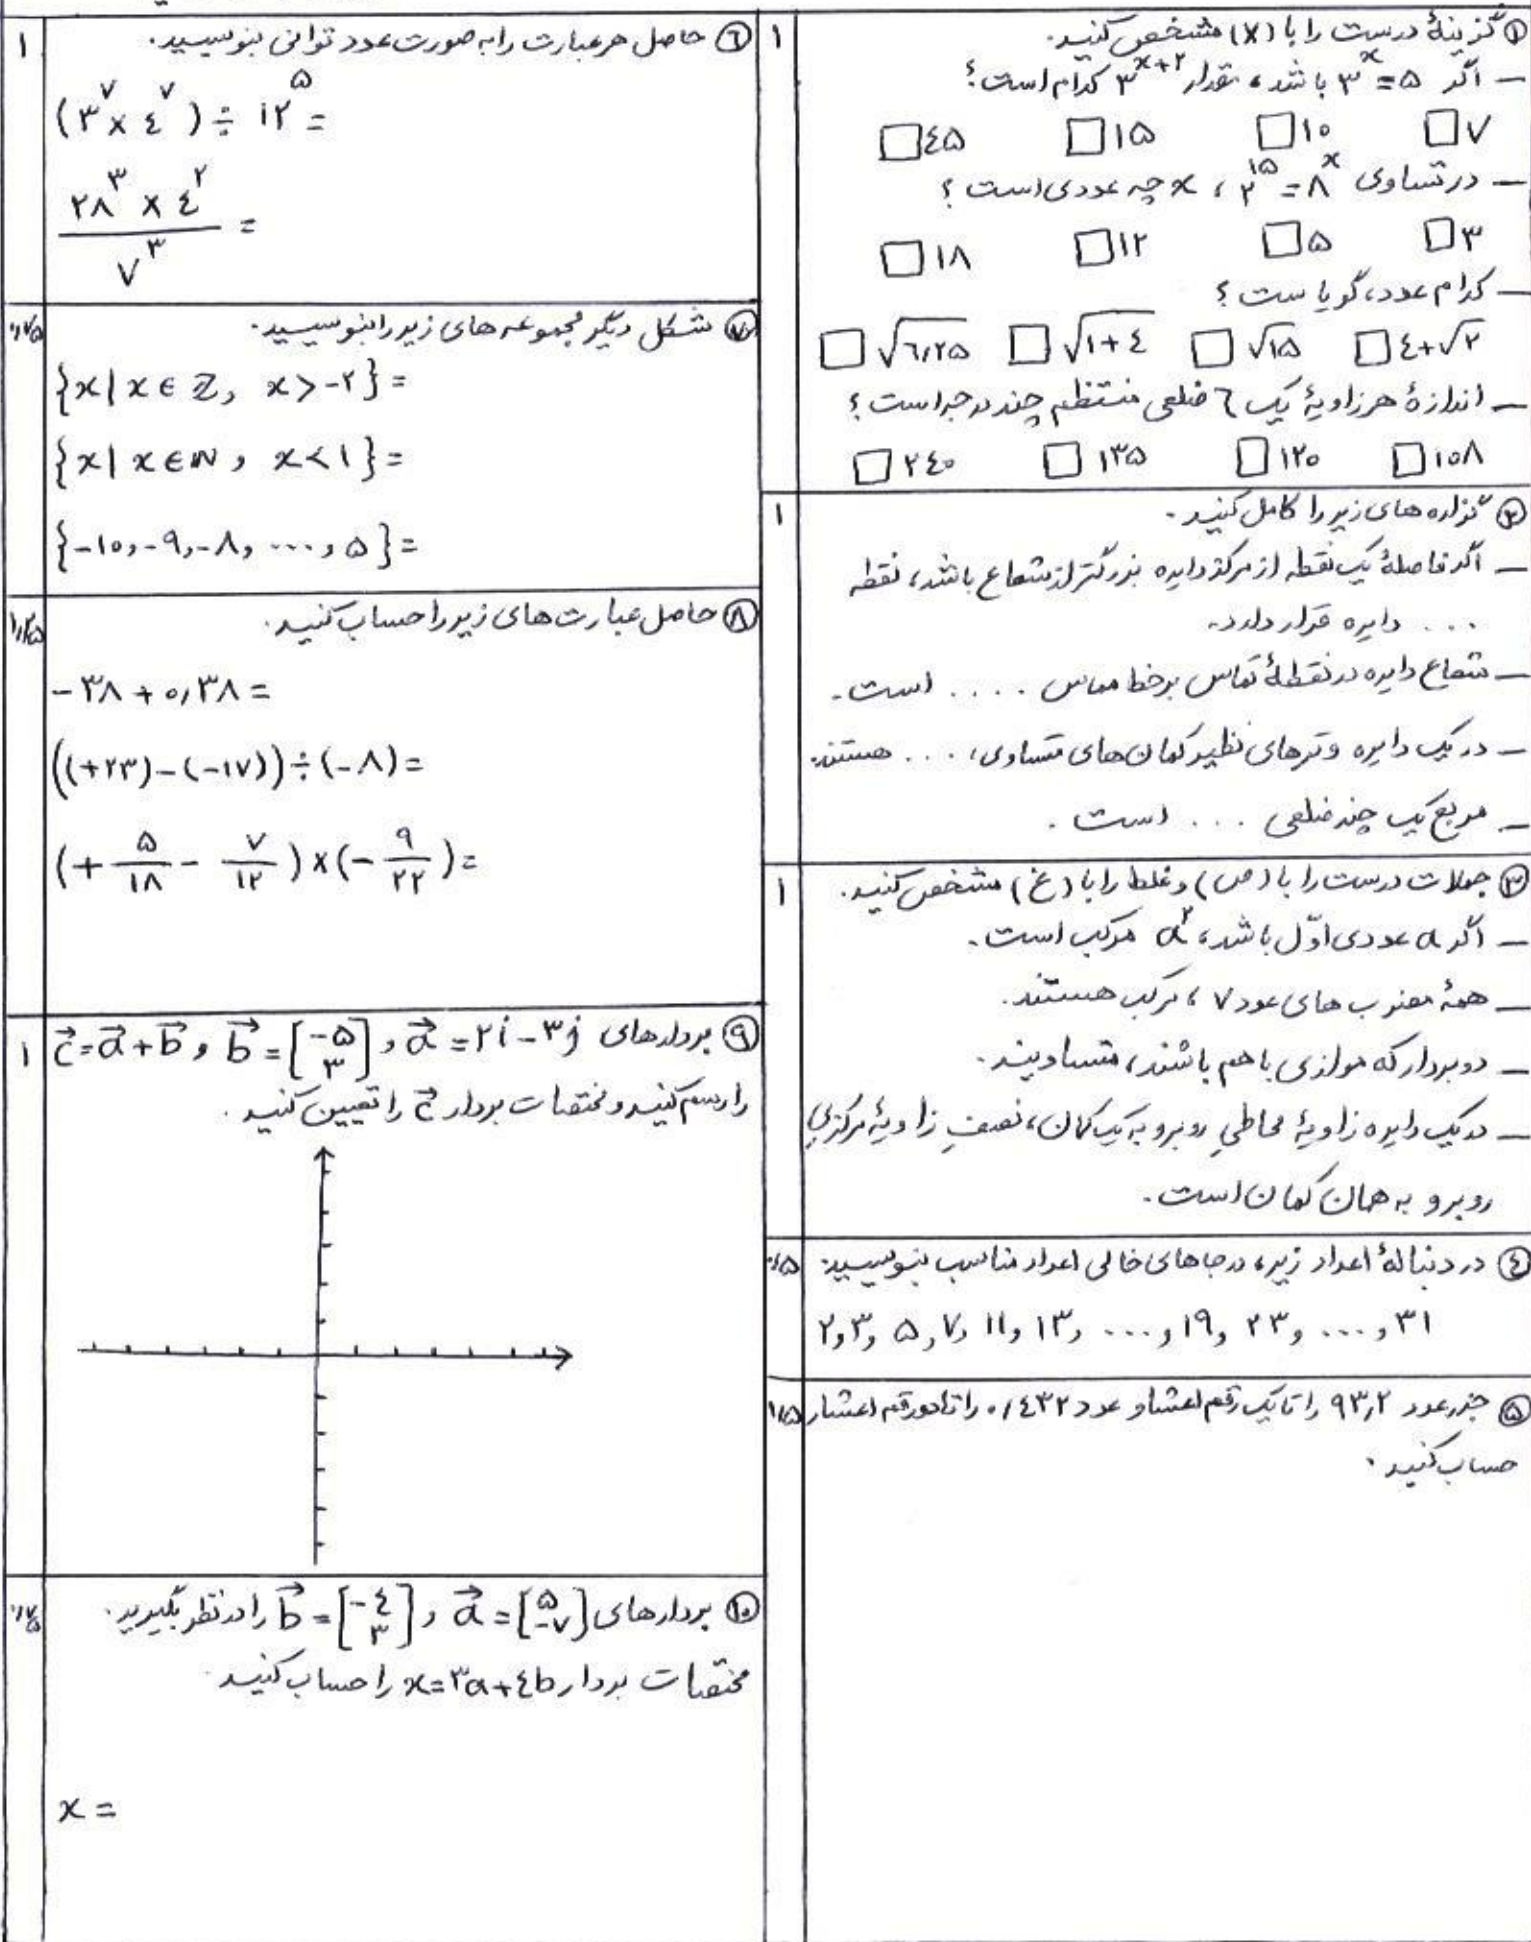 ① گزینهٔ درست را با (X) مشخص کنید. ۱
– اگر ۳^x = ۵ باشد، مقدار ۳^x+۲ کدام است؟
□ ۷ □ ۱۰ □ ۱۵ □ ۴۵
– در تساوی ۲^۱۵ = ۸^x ، x چه عددی است؟
□ ۳ □ ۵ □ ۱۲ □ ۱۸
– کدام عدد، گویا ست؟
□ ۴+√۲ □ √۱۵ □ √۱+۴ □ √۶٫۲۵
– اندازهٔ هر زاویهٔ یک ۶ ضلعی منتظم چند درجه است؟
□ ۱۰۸ □ ۱۲۰ □ ۱۳۵ □ ۲۴۰
② گزاره های زیر را کامل کنید. ۱
– اگر فاصلهٔ یک نقطه از مرکز دایره بزرگتر از شعاع باشد، نقطه
... دایره قرار دارد.
– شعاع دایره در نقطهٔ تماس بر خط مماس .... است.
– در یک دایره وترهای نظیر کمان های متساوی، ... هستند.
– مربع یک چند ضلعی ... است.
③ جملات درست را با (ص) و غلط را با (غ) مشخص کنید. ۱
– اگر a عددی اوّل باشد، a^۲ مرکب است.
– همهٔ مضرب های عدد ۷ ، مرکب هستند.
– دو بردار که موازی با هم باشند، متساویند.
– در یک دایره زاویهٔ محاطیِ روبرو به یک کمان، نصفِ زاویهٔ مرکزیِ
روبرو به همان کمان است.
④ در دنبالهٔ اعداد زیر، در جاهای خالی اعداد مناسب بنویسید: ۰٫۵
۲ , ۳ , ۵ , ۷ , ۱۱ , ۱۳ , ... , ۱۹ , ۲۳ , ... , ۳۱
⑤ جذر عدد ۹۳٫۲ را تا یک رقم اعشار و عدد ۰٫۴۳۲ را تا دو رقم اعشار ۱٫۵
حساب کنید.
⑥ حاصل هر عبارت را به صورت عدد توانی بنویسید. ۱
(۳^۷ × ۴^۷) ÷ ۱۲^۵ =
۲۸^۳ × ۴^۲ / ۷^۳ =
⑦ شکل دیگر مجموعه های زیر را بنویسید. ۰٫۷۵
{x | x ∈ Z, x > -۲} =
{x | x ∈ N , x < ۱} =
{-۱۰, -۹, -۸, ..., ۵} =
⑧ حاصل عبارت های زیر را حساب کنید.
-۳۸ + ۰٫۳۸ =
((+۲۳) - (-۱۷)) ÷ (-۸) =
(+ ۵/۱۸ - ۷/۱۲) × (- ۹/۲۲) =
⑨ بردارهای a⃗ = ۲i - ۳j , b⃗ = [-۵ ۳] و c⃗ = a⃗ + b⃗ ۱
را رسم کنید و مختصات بردار c⃗ را تعیین کنید.
⑩ بردارهای a⃗ = [۵ -۷] , b⃗ = [-۴ ۳] را در نظر بگیرید. ۰٫۷۵
مختصات بردار x = ۳a + ۴b را حساب کنید.
x =